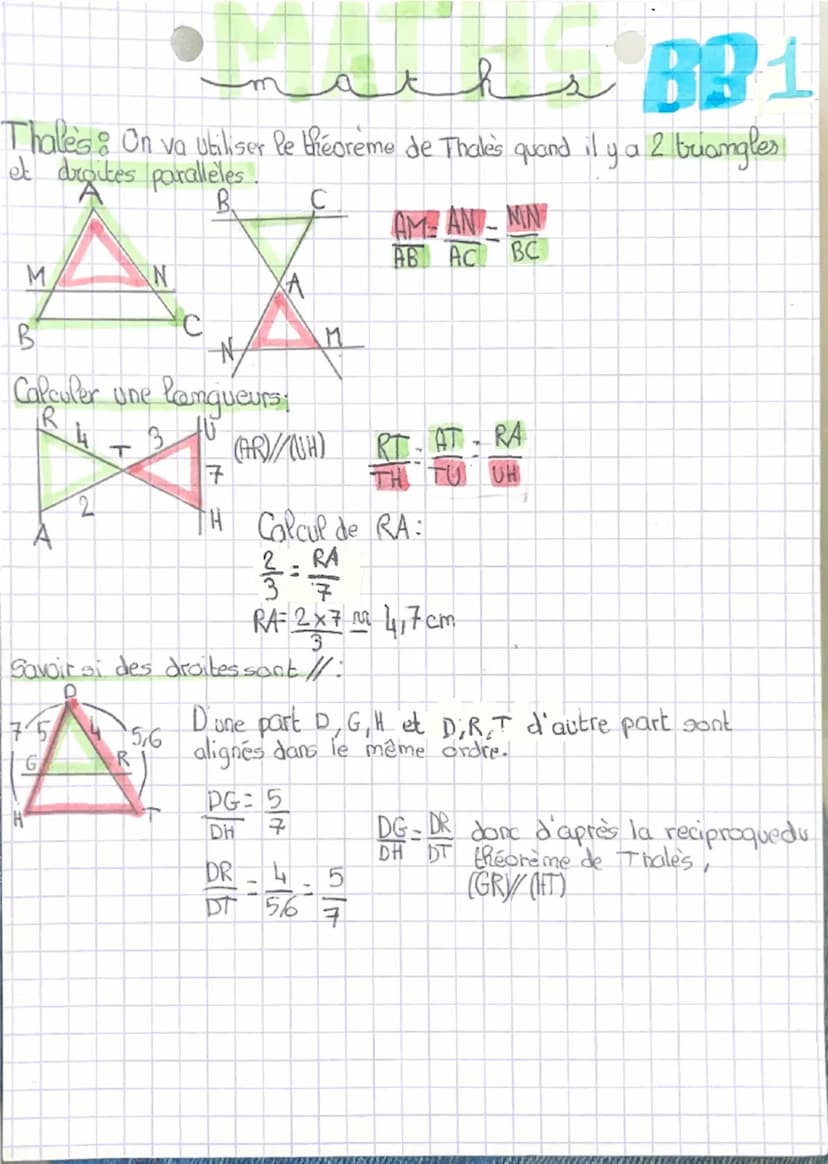 MATHS
maths
BB1
Thalès: On va utiliser le théorème de Thalès quand il y a 2 triangles
et droites parallèles.
A
M N
B C
B C
A
N M
AM/AB = AN/AC = MN/BC
Calculer une longueurs:
R 4 T 3 U
7
2
A H
(AR)//(UH)
RT/TH = AT/TU = RA/UH
Calcul de RA:
2/3 = RA/7
RA = 2x7/3 ≈ 4,7cm
Savoir si des droites sont //:
D
7 5 4 5,6
G R
H T
D'une part D, G, H et D, R, T d'autre part sont
alignés dans le même ordre.
DG/DH = 5/7
DR/DT = 4/5,6 = 5/7
DG/DH = DR/DT donc d'après la reciproque du
théorème de Thalès,
(GR)//(HT)